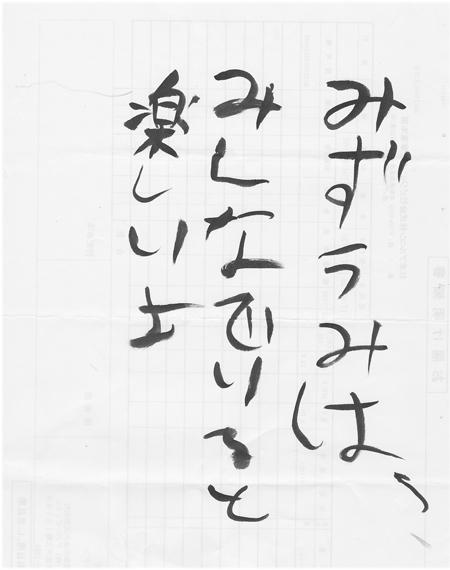 みずうみは、
みんなでいると
楽しいよ